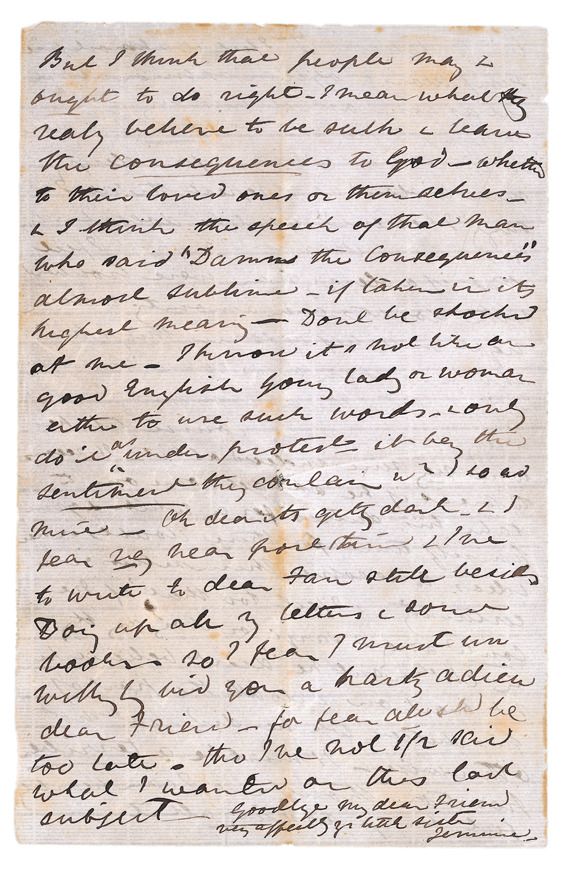 But I think that people may &
ought to do right - I mean what they
realy believe to be such & leave
the consequences to God - whether
to their loved ones or themselves -
& I think the speech of that man
who said "Damn the Consequences"
almost sublime - if taken in its
highest meaning - Dont be shocked
at me - I know it s not like a
good English young lady or woman
either to use such words - & only
do it as "under protest" it being the
sentiment they contain wh I so ad
mire - Oh dear its getg dark - & I
fear very near post time & I've
to write to dear Fan still besides
Doing up all my letters & some
books so I fear I must un
willingly bid you a hasty adieu
dear Friend - for fear all shd be
too late - tho I've not 1/2 said
what I wanted on this last
subject - Goodbye my dear Friend
very affectly yr little sister
Jemima -